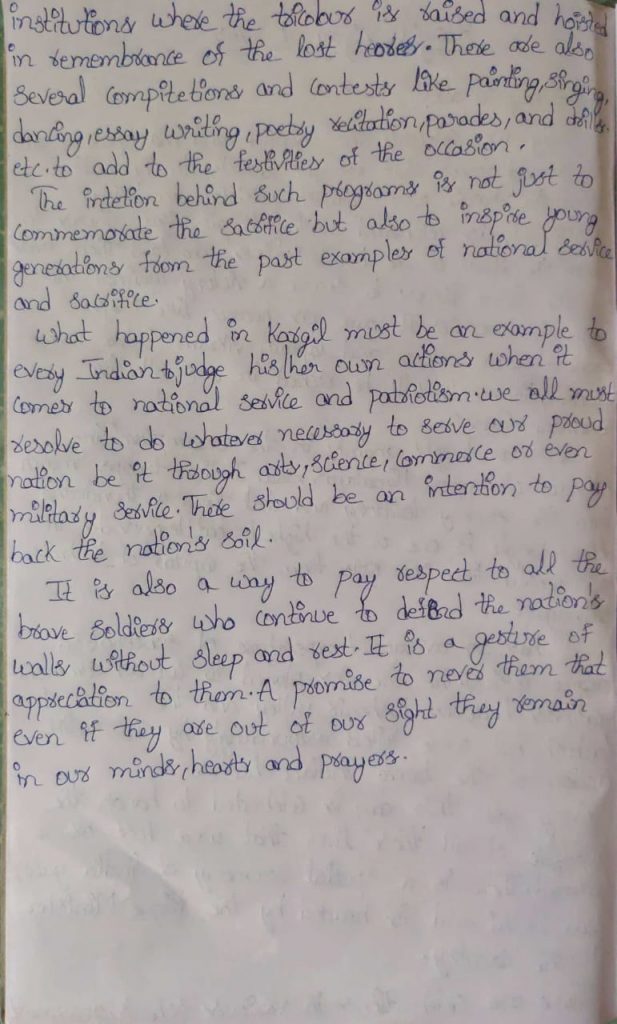 institutions where the tricolour is raised and hoisted
in remembrance of the lost heores. There are also
several compitetions and contests like painting, singing,
dancing, essay writing, poetry recitation, parades, and drills.
etc. to add to the festivities of the occasion.
The intetion behind such programs is not just to
commemorate the sacrifice but also to inspire young
generations from the past examples of national service
and sacrifice.
What happened in Kargil must be an example to
every Indian to judge his/her own actions when it
comes to national service and patriotism. we all must
resolve to do whatever necessary to serve our proud
nation be it through arts, science, commerce or even
military service. There should be an intention to pay
back the nation's soil.
It is also a way to pay respect to all the
brave soldiers who continue to defend the nation's
walls without sleep and rest. It is a gesture of
appreciation to them. A promise to never them that
even if they are out of our sight they remain
in our minds, hearts and prayers.